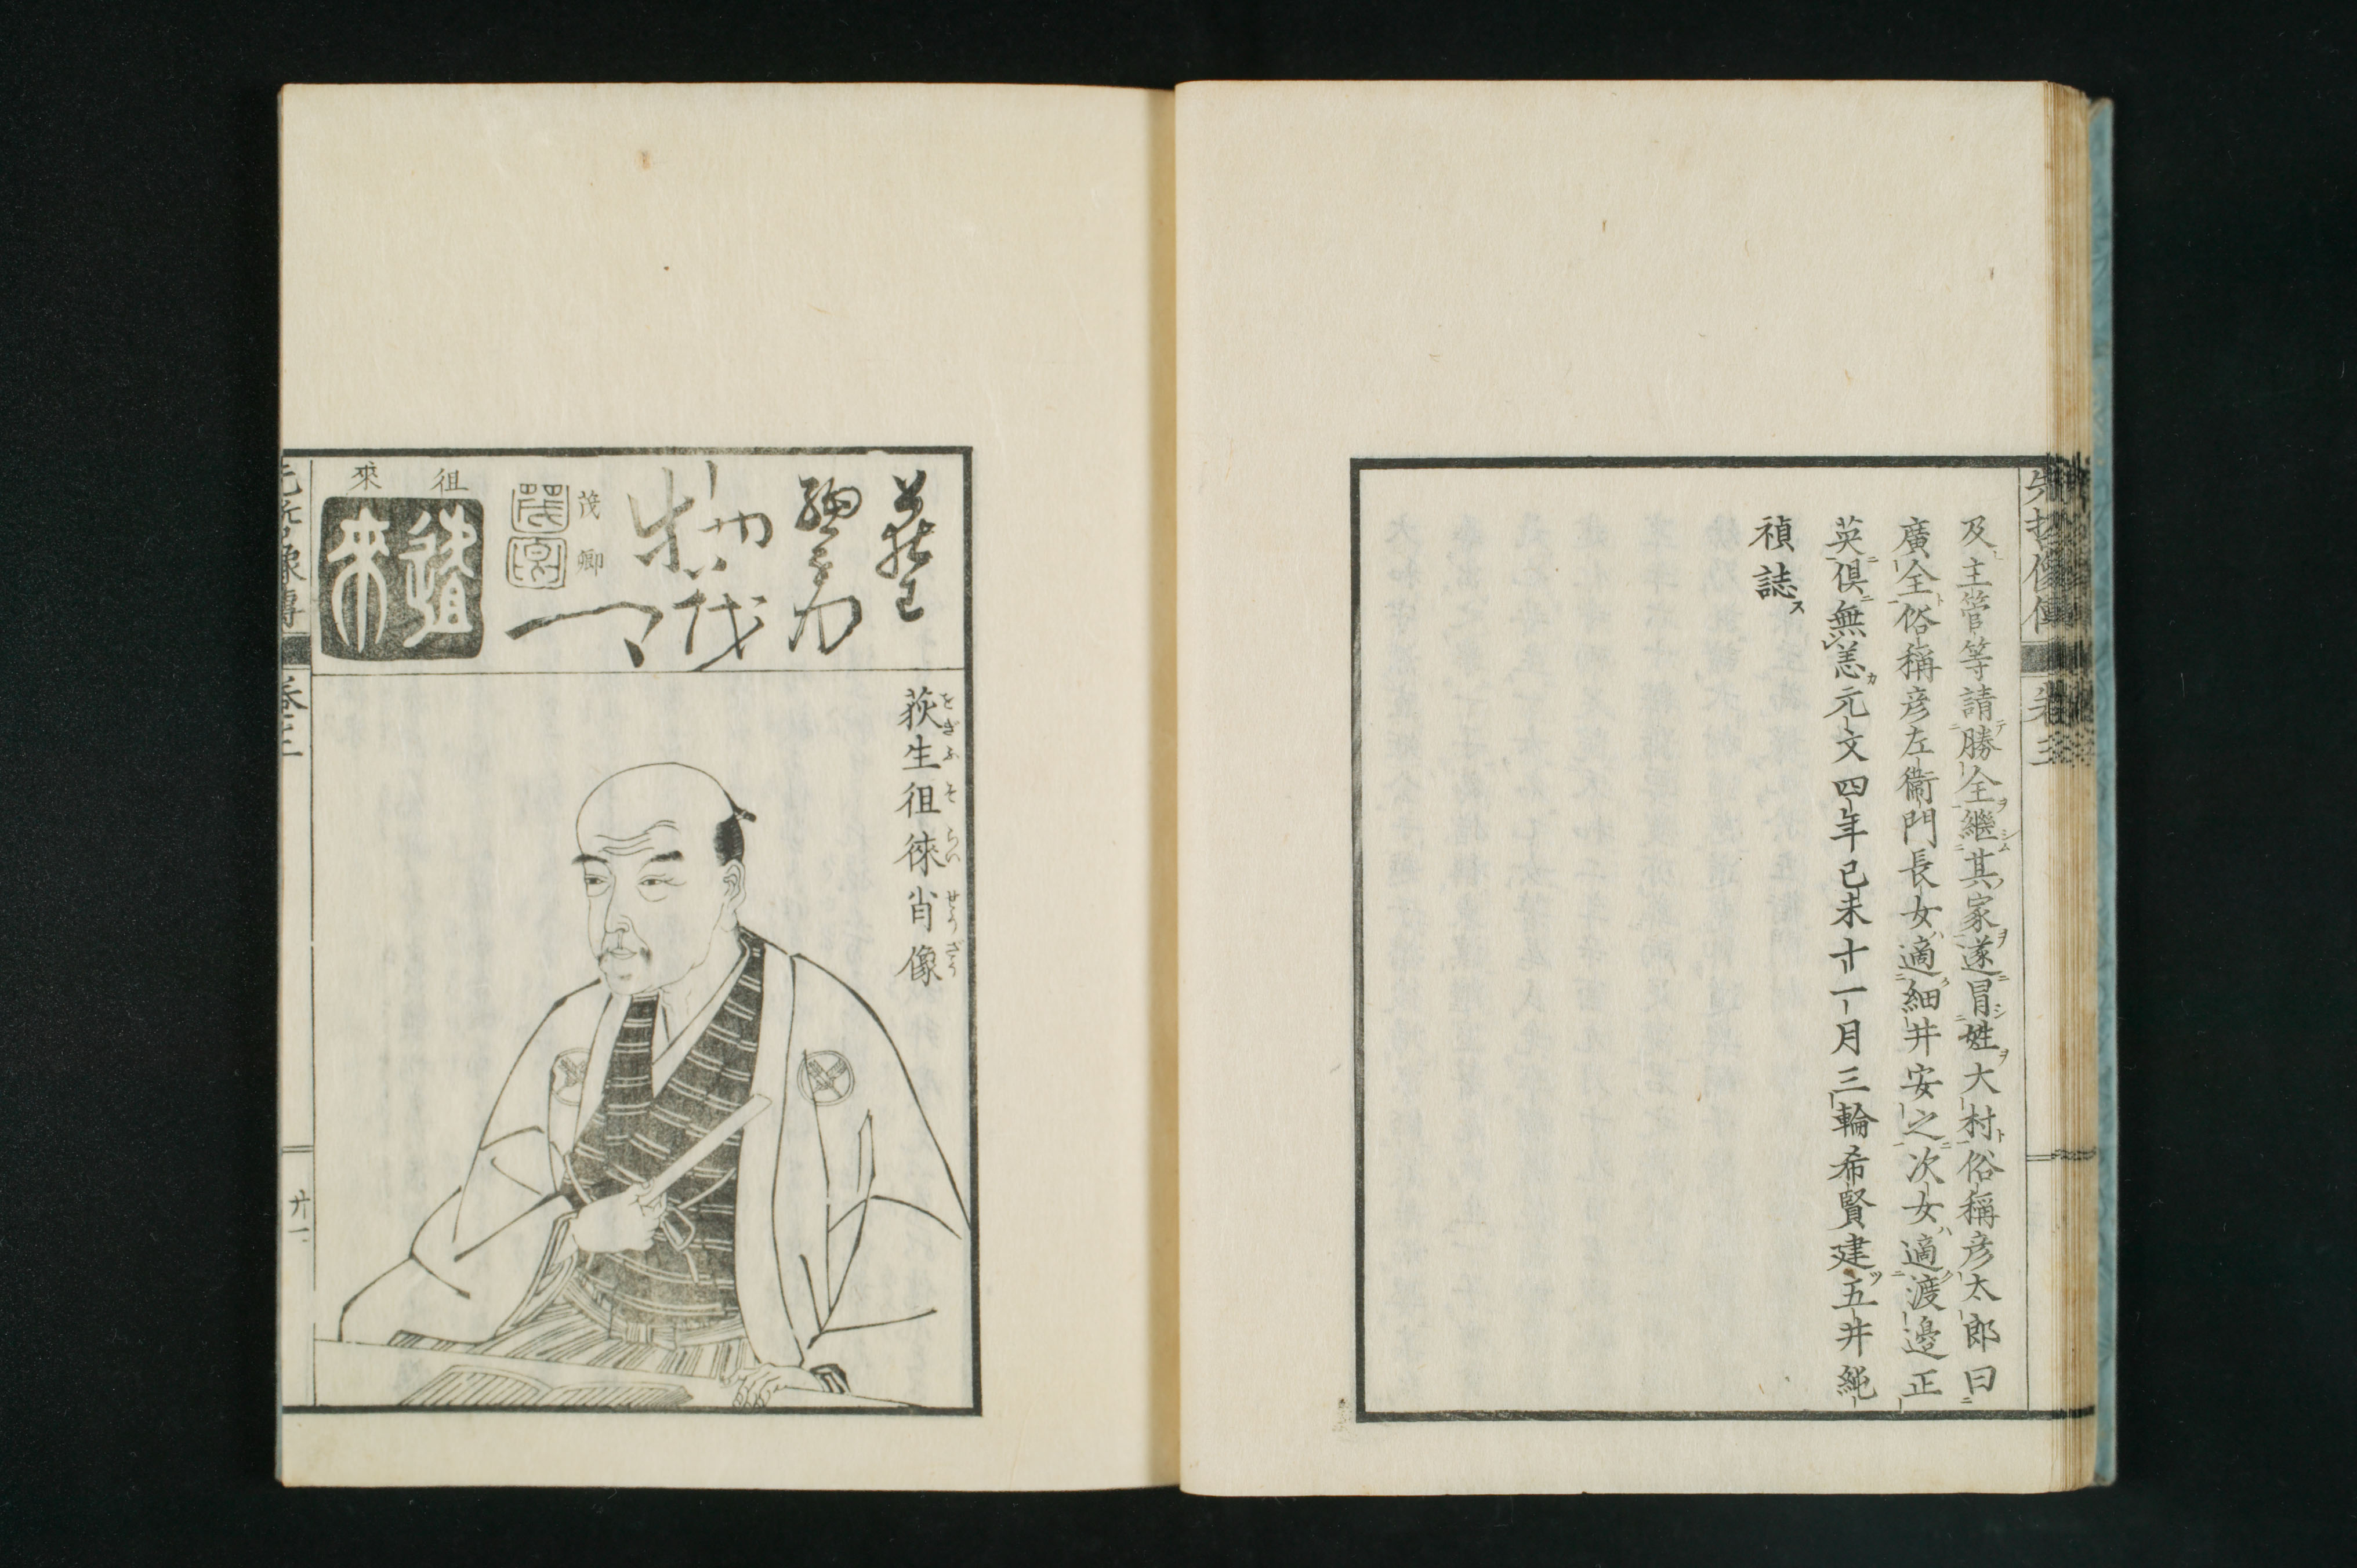 先哲像傳 卷三
及主管等請勝全繼其家遂冒姓大村俗稱彦太郎曰
廣全俗稱彦左衞門長女適細井安之次女適渡邉正
英倶無恙元文四年已未十一月三輪希賢建五井純
禎誌
荻生徂徠肖像
をぎふそらいせうざう
茂卿
徂來
先哲像傳 卷三
廿一